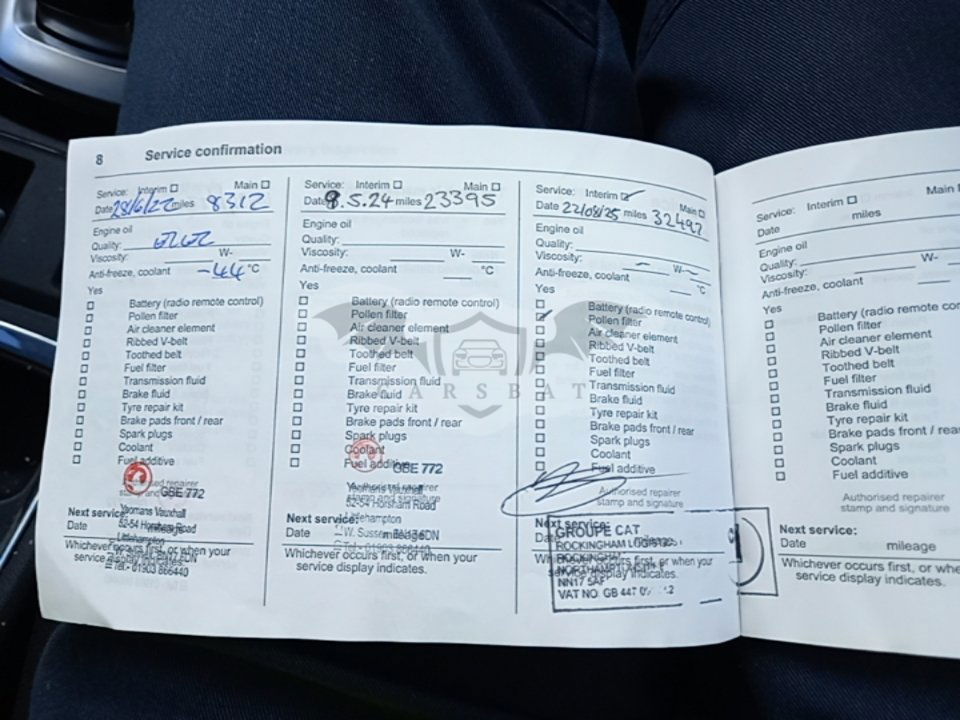 8 Service confirmation
Service: Interim Main
Date 28/6/22 miles 8312
Engine oil
Quality:
Viscosity: W-
Anti-freeze, coolant -44 °C
Yes
Battery (radio remote control)
Pollen filter
Air cleaner element
Ribbed V-belt
Toothed belt
Fuel filter
Transmission fluid
Brake fluid
Tyre repair kit
Brake pads front / rear
Spark plugs
Coolant
Fuel additive
GBE 772
Authorised repairer
stamp and signature
Yeomans Vauxhall
52-54 Horsham Road
Littlehampton
Next service:
Date mileage
Whichever occurs first, or when your
service display indicates.
Tel: 01903 866440
Service: Interim Main
Date 9.5.24 miles 23395
Engine oil
Quality:
Viscosity: W-
Anti-freeze, coolant °C
Yes
Battery (radio remote control)
Pollen filter
Air cleaner element
Ribbed V-belt
Toothed belt
Fuel filter
Transmission fluid
Brake fluid
Tyre repair kit
Brake pads front / rear
Spark plugs
Coolant
Fuel additive
GBE 772
Authorised repairer
stamp and signature
Yeomans Vauxhall
52-54 Horsham Road
Littlehampton
Next service:
Date mileage
Whichever occurs first, or when your
service display indicates.
Service: Interim Main
Date 22/08/25 miles 32497
Engine oil
Quality:
Viscosity: W-
Anti-freeze, coolant °C
Yes
Battery (radio remote control)
Pollen filter
Air cleaner element
Ribbed V-belt
Toothed belt
Fuel filter
Transmission fluid
Brake fluid
Tyre repair kit
Brake pads front / rear
Spark plugs
Coolant
Fuel additive
Authorised repairer
stamp and signature
Next service:
GROUPE CAT
ROCKINGHAM
NN17 5AF
VAT NO. GB 447
or when your
service display indicates.
Service: Interim Main
Date miles
Engine oil
Quality:
Viscosity: W-
Anti-freeze, coolant
Yes
Battery (radio remote
Pollen filter
Air cleaner element
Ribbed V-belt
Toothed belt
Fuel filter
Transmission fluid
Brake fluid
Tyre repair kit
Brake pads front / rear
Spark plugs
Coolant
Fuel additive
Authorised repairer
stamp and signature
Next service:
Date mileage
Whichever occurs first, or
service display indicates.
CARSBAT